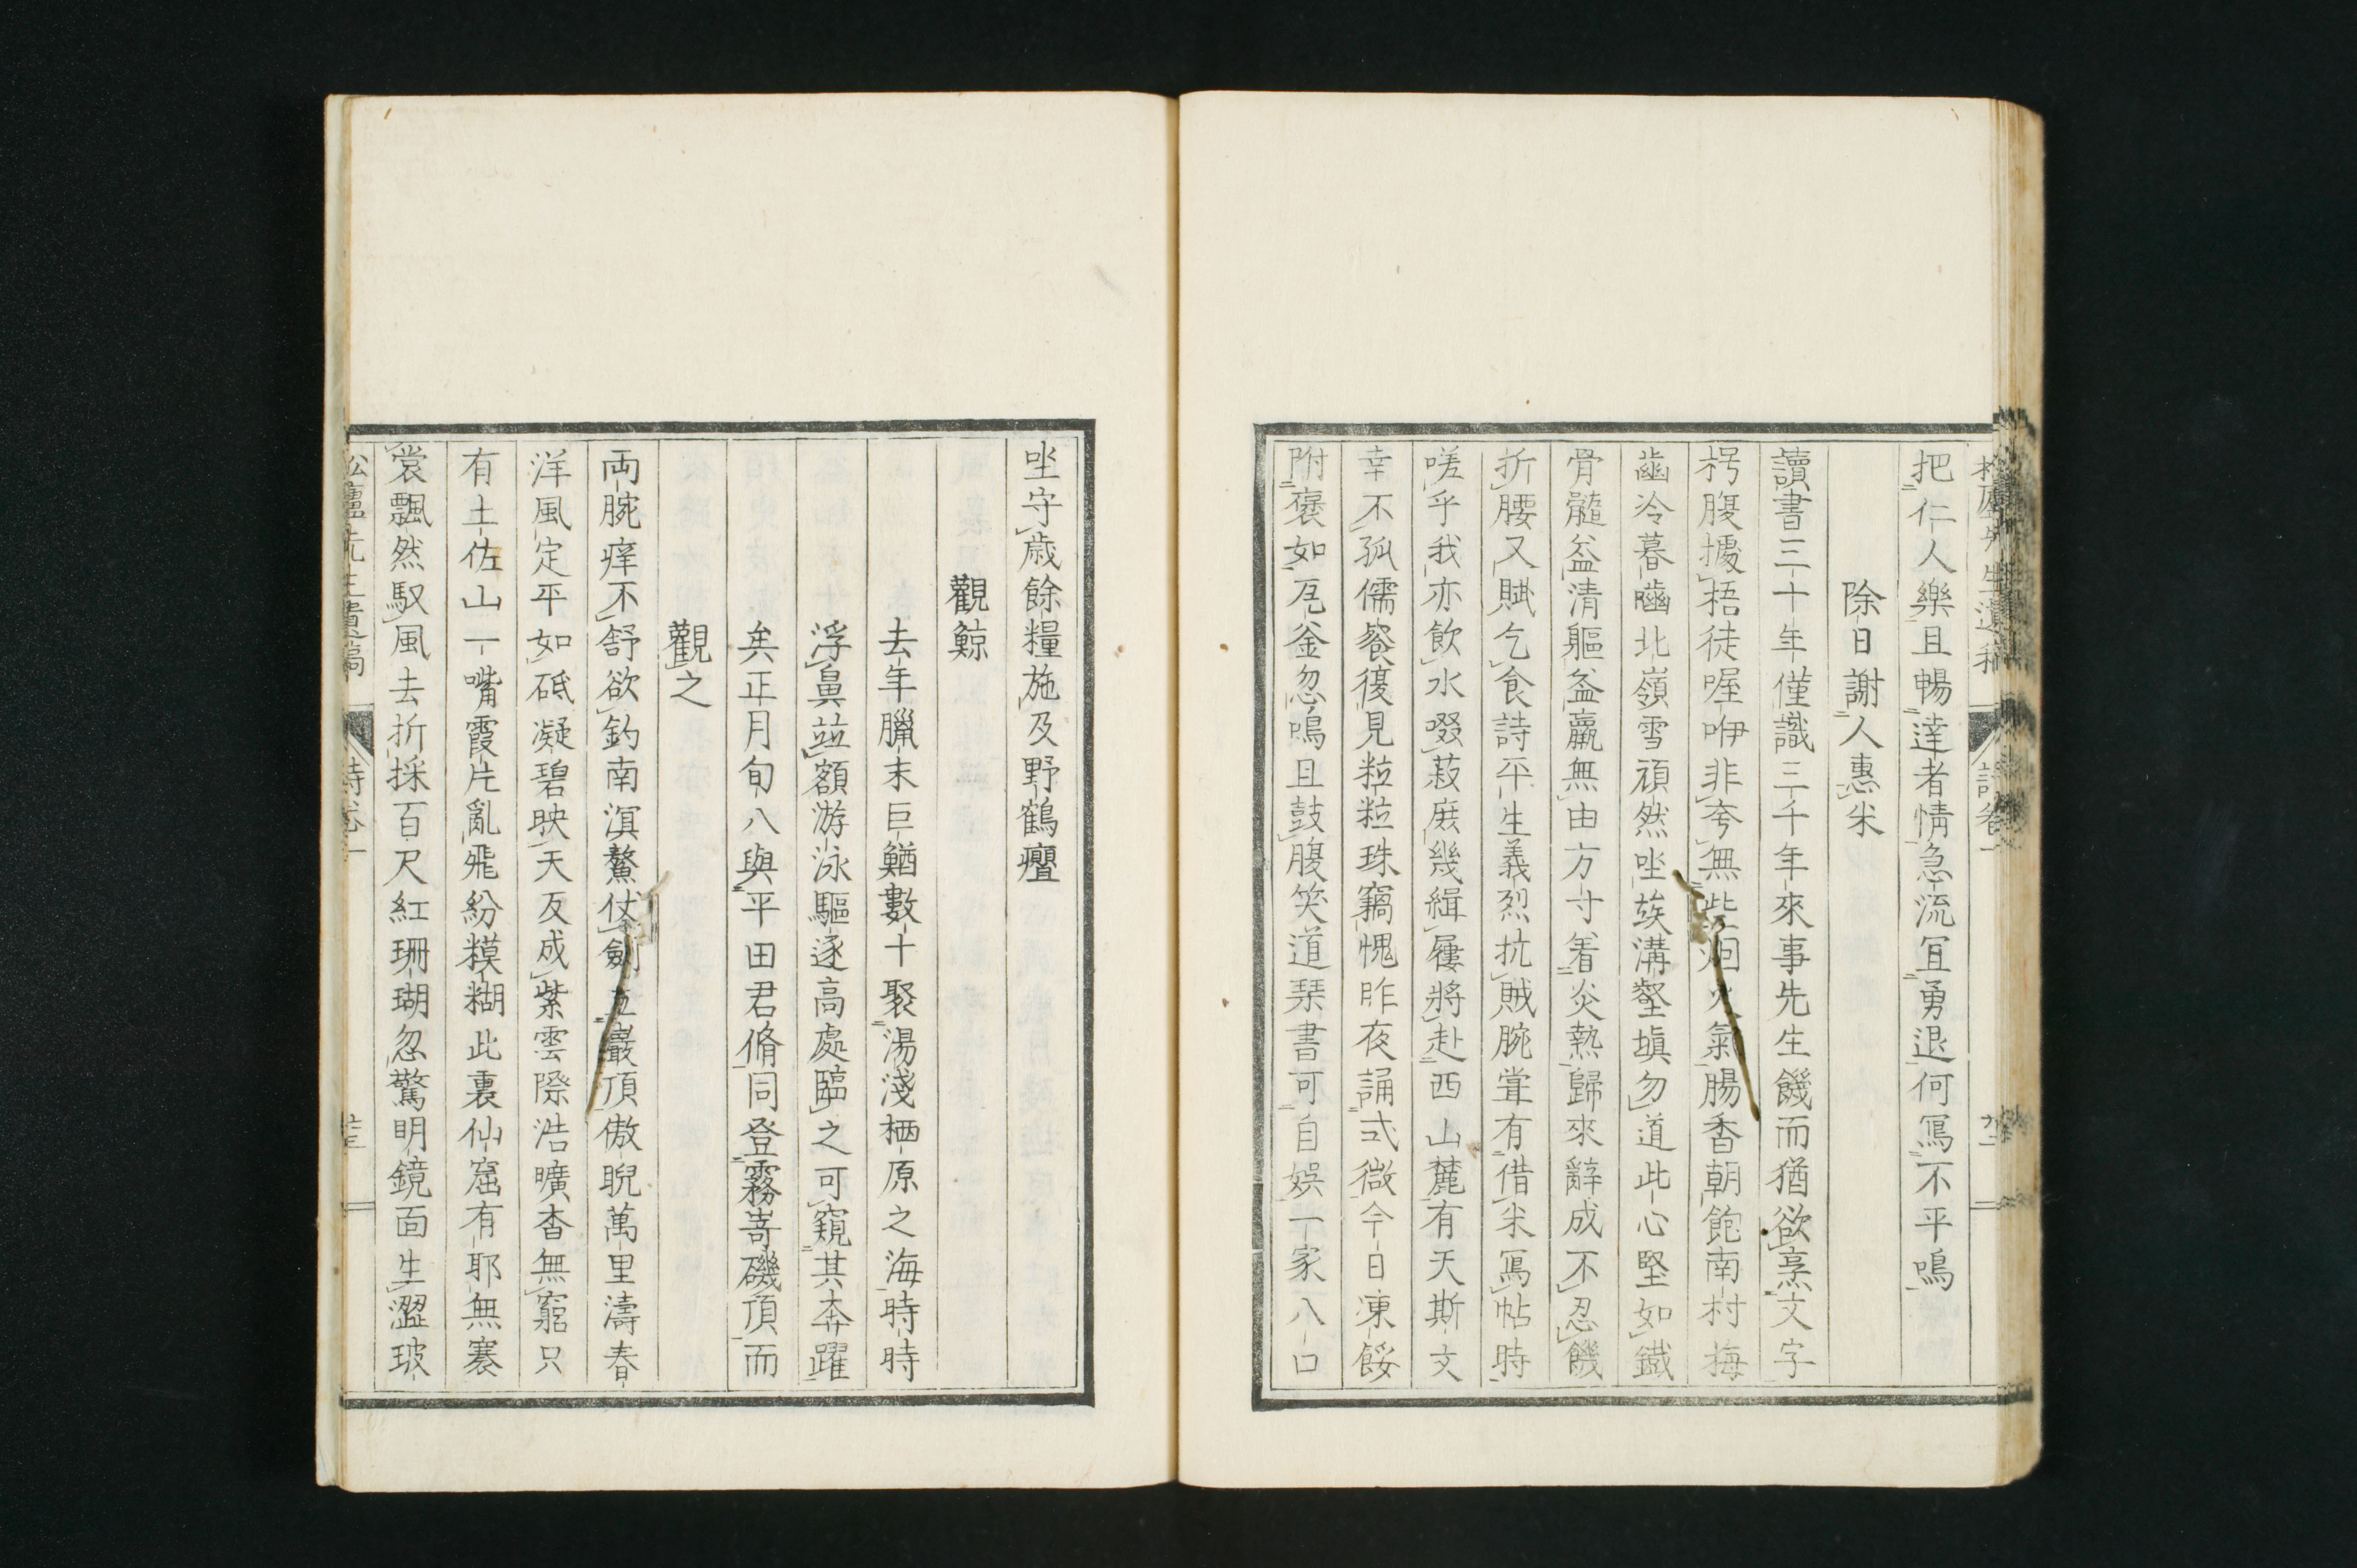 把仁人樂且暢達者情急流宜勇退何寫不平鳴
除日謝人惠米
讀書三十年僅識三千年來事先生饑而猶欲烹文字
枵腹據梧徒喔咿非夸無些烟火氣腸香朝飽南村梅
齒冷暮嚙北嶺雪頑然坐竢溝壑塡勿道此心堅如鐵
骨髓益清軀益羸無由方寸着炎熱歸來辭成不忍饑
折腰又賦乞食詩平生義烈抗賊腕嘗有借米寫帖時
嗟乎我亦飲水啜菽庶幾緝屨將赴西山麓有天斯文
幸不孤儒飧復見粒粒珠竊愧昨夜誦式微今日凍餒
附褒如瓦釜忽鳴且鼓腹笑道琹書可自娛一家八口
坐守歲餘糧施及野鶴癯
觀鯨
去年臘末巨鰌數十聚湯淺栖原之海時時
浮鼻竝額游泳驅逐高處臨之可窺其奔躍
矣正月旬八與平田君脩同登霧嵜磯頂而
觀之
両腕痒不舒欲釣南溟鰲仗劍立巖頂傲睨萬里濤春
洋風定平如砥凝碧映天反成紫雲際浩曠杳無窮只
有土佐山一嘴霞片亂飛紛糢糊此裏仙窟有耶無褰
裳飄然馭風去折採百尺紅珊瑚忽驚明鏡面生澀玻